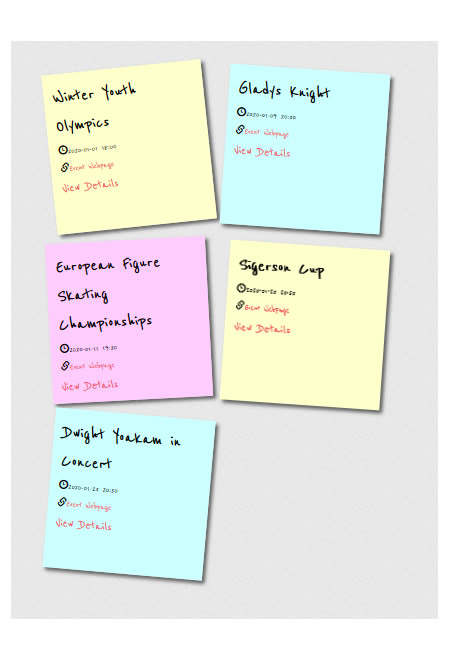 Winter Youth
Olympics
2020-01-01 18:00
Event Webpage
View Details
Gladys Knight
2020-01-09 20:00
Event Webpage
View Details
European Figure
Skating
Championships
2020-01-11 19:30
Event Webpage
View Details
Sigerson Cup
Event Webpage
View Details
Dwight Yoakam in
Concert
2020-01-23 20:30
Event Webpage
View Details